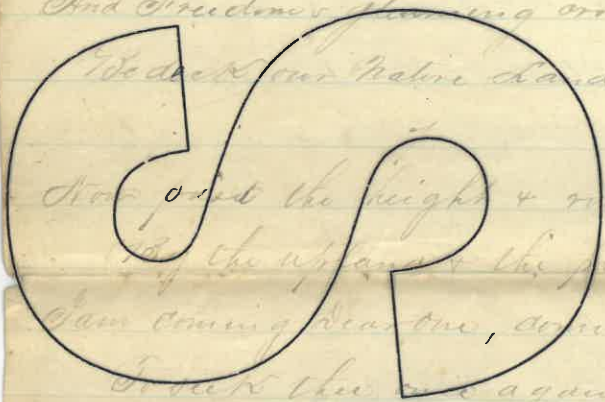 And Freedom's gleaming
Bedeck our Native Land
Now past the height &
By the upland & the
I am coming dear one
To seek thee once again